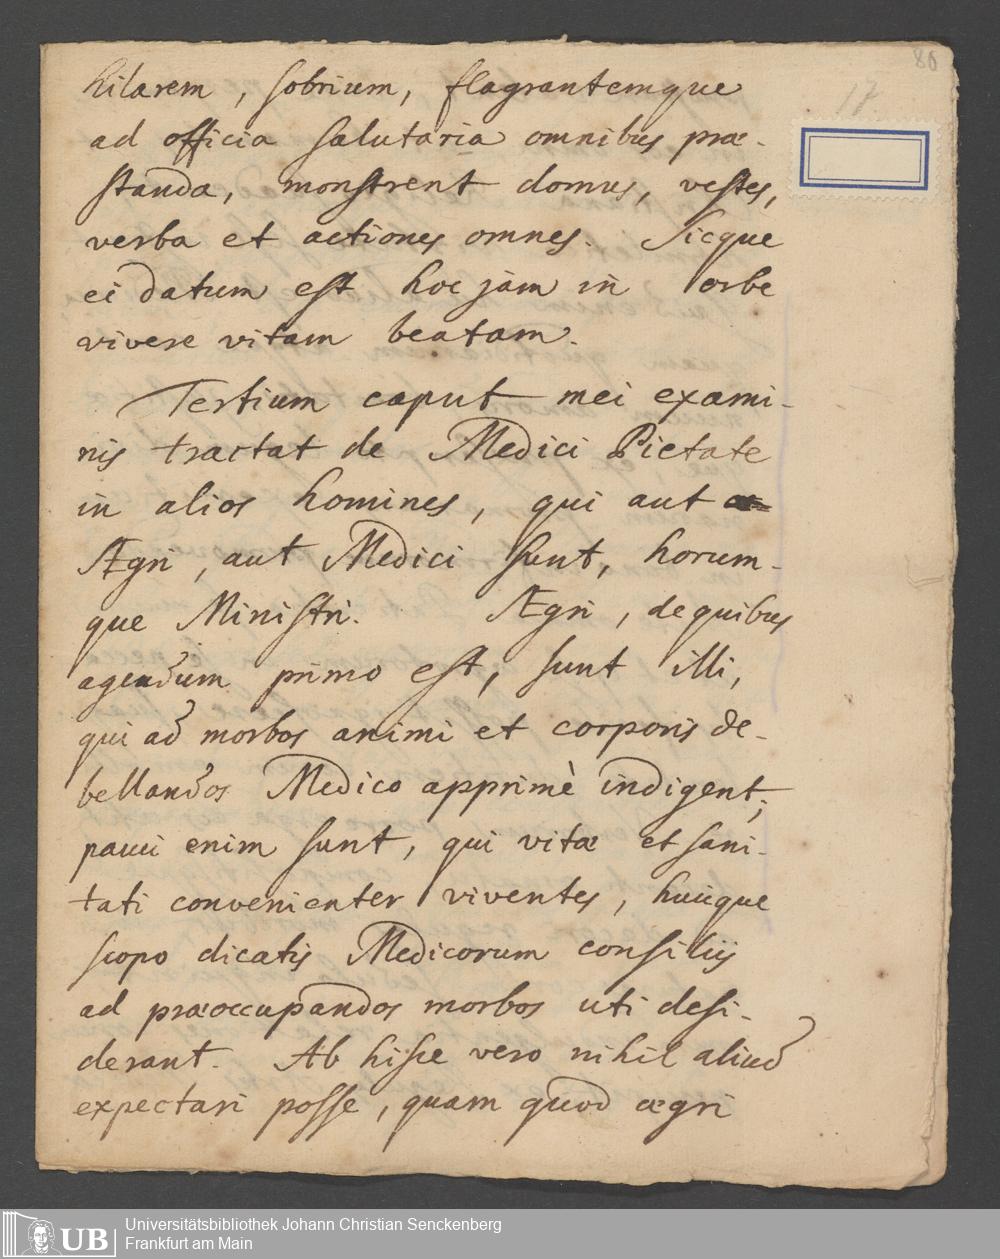 86
17
hilarem, sobrium, flagrantemque
ad officia salutaria omnibus præ-
standa, monstrent domus, vestes,
verba et actiones omnes. Sicque
ei datum est hoc jam in orbe
vivere vitam beatam.
Tertium caput mei exami-
nis tractat de Medici Pietate
in alios homines, qui aut
Ægri, aut Medici sunt, horum-
que Ministri. Ægri, de quibus
agendum primo est, sunt illi,
qui ad morbos animi et corporis de-
bellandos Medico apprimè indigent;
pauci enim sunt, qui vitæ et sani-
tati convenienter viventes, huicque
scopo dicatis Medicorum consiliis
ad præoccupandos morbos uti desi-
derant. Ab hisce vero nihil aliud
expectari posse, quam quod ægri
UB
Universitätsbibliothek Johann Christian Senckenberg
Frankfurt am Main